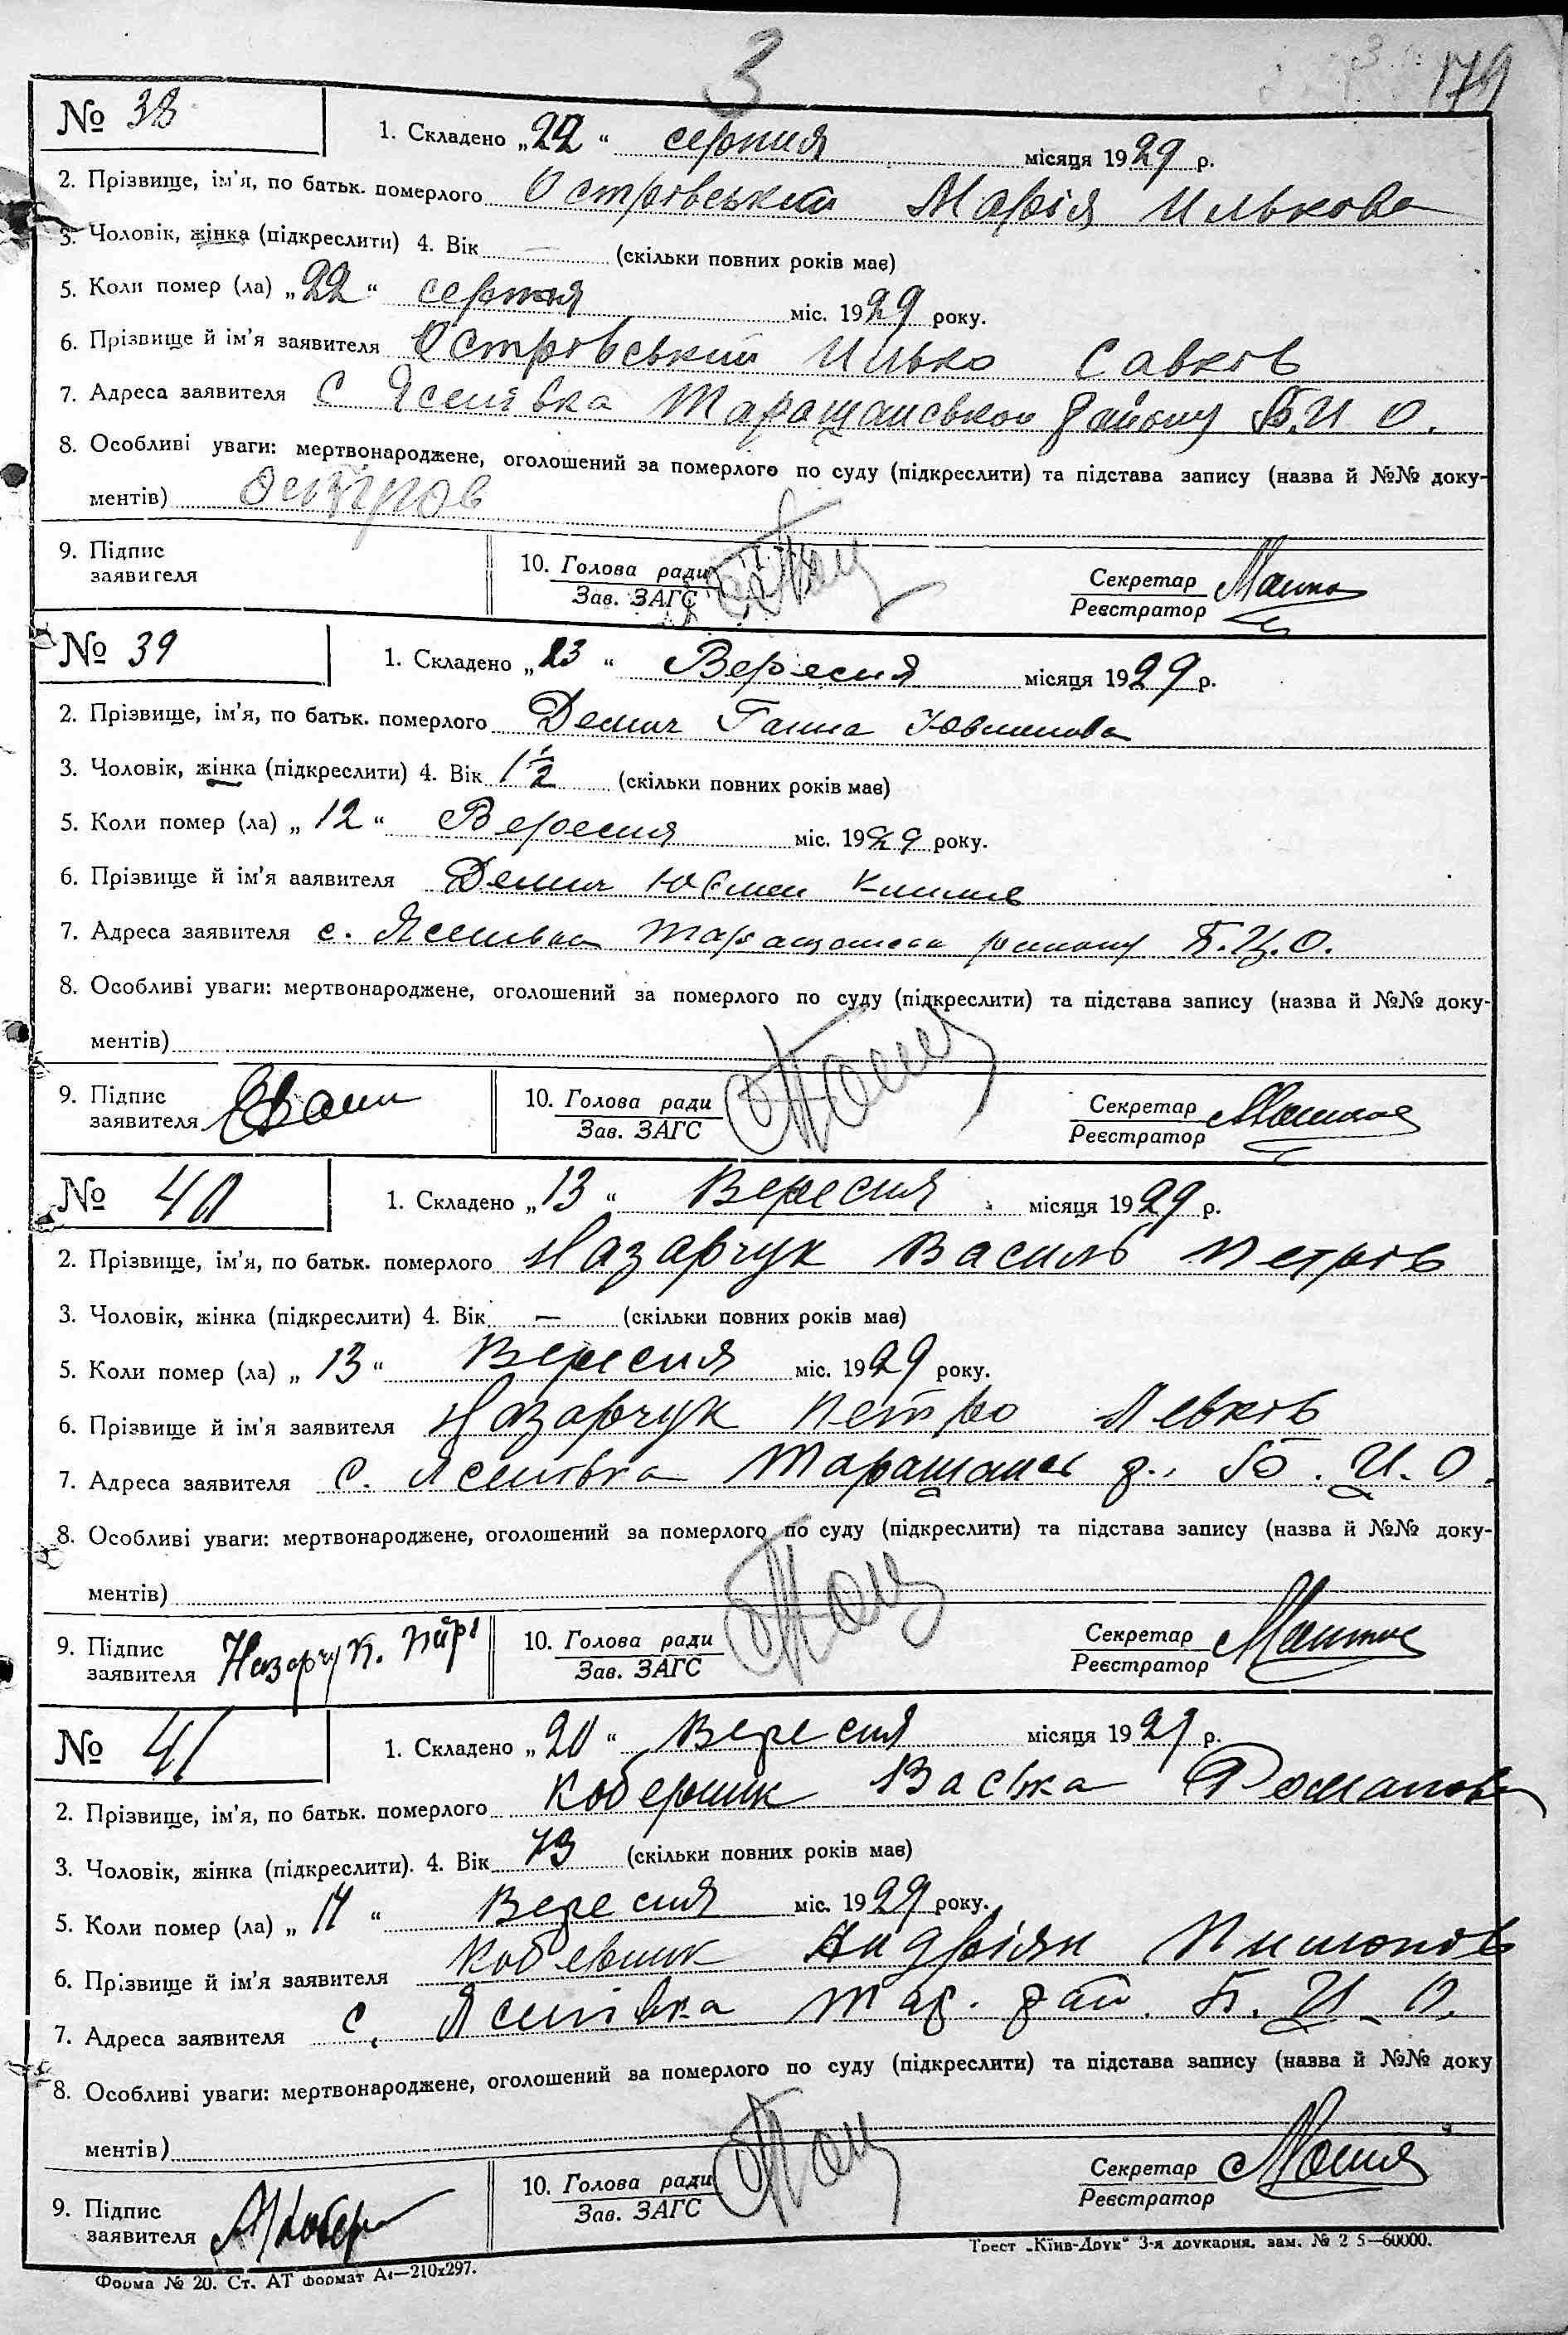 3
179
№ 38
1. Складено „22“ серпня місяця 1929 р.
2. Прізвище, ім'я, по батьк. померлого Островський Марія Илькова
3. Чоловік, жінка (підкреслити) 4. Вік — (скільки повних років має)
5. Коли помер (ла) „22“ серпня міс. 1929 року.
6. Прізвище й ім'я заявителя Островський Илько Савків
7. Адреса заявителя С Ясенівка Таращанськой району Б.Ц О.
8. Особливі уваги: мертвонароджене, оголошений за померлого по суду (підкреслити) та підстава запису (назва й №№ доку-
ментів) Остров
9. Підпис заявителя
10. Голова ради
Зав. ЗАГС
Секретар
Реєстратор
№ 39
1. Складено „13“ Вересня місяця 1929 р.
2. Прізвище, ім'я, по батьк. померлого Демич Ганна
3. Чоловік, жінка (підкреслити) 4. Вік 1½ (скільки повних років має)
5. Коли помер (ла) „12“ Вересня міс. 1929 року.
6. Прізвище й ім'я заявителя Демич
7. Адреса заявителя с. Ясенівка району Б.Ц.О.
8. Особливі уваги: мертвонароджене, оголошений за померлого по суду (підкреслити) та підстава запису (назва й №№ доку-
ментів)
9. Підпис заявителя
10. Голова ради
Зав. ЗАГС
Секретар
Реєстратор
№ 40
1. Складено „13“ Вересня місяця 1929 р.
2. Прізвище, ім'я, по батьк. померлого Назарчук Василь Петрів
3. Чоловік, жінка (підкреслити) 4. Вік — (скільки повних років має)
5. Коли помер (ла) „13“ Вересня міс. 1929 року.
6. Прізвище й ім'я заявителя Назарчук Петро Левків
7. Адреса заявителя С. Ясенівка Таращансь р., Б. Ц. О.
8. Особливі уваги: мертвонароджене, оголошений за померлого по суду (підкреслити) та підстава запису (назва й №№ доку-
ментів)
9. Підпис заявителя Назарчук.
10. Голова ради
Зав. ЗАГС
Секретар
Реєстратор
№ 41
1. Складено „20“ Вересня місяця 1929 р.
2. Прізвище, ім'я, по батьк. померлого Коберник Васька Романова
3. Чоловік, жінка (підкреслити). 4. Вік 73 (скільки повних років має)
5. Коли помер (ла) „ “ Вересня міс. 1929 року.
6. Прізвище й ім'я заявителя Коберник Андріян
7. Адреса заявителя С. Ясенівка Тар. рай. Б. Ц. О.
8. Особливі уваги: мертвонароджене, оголошений за померлого по суду (підкреслити) та підстава запису (назва й №№ доку
ментів)
9. Підпис заявителя
10. Голова ради
Зав. ЗАГС
Секретар
Реєстратор
Форма № 20. Ст. АТ формат А4—210x297.
Трест „Київ-Друк“ 3-я друкарня, зам. № 2 5—60000.